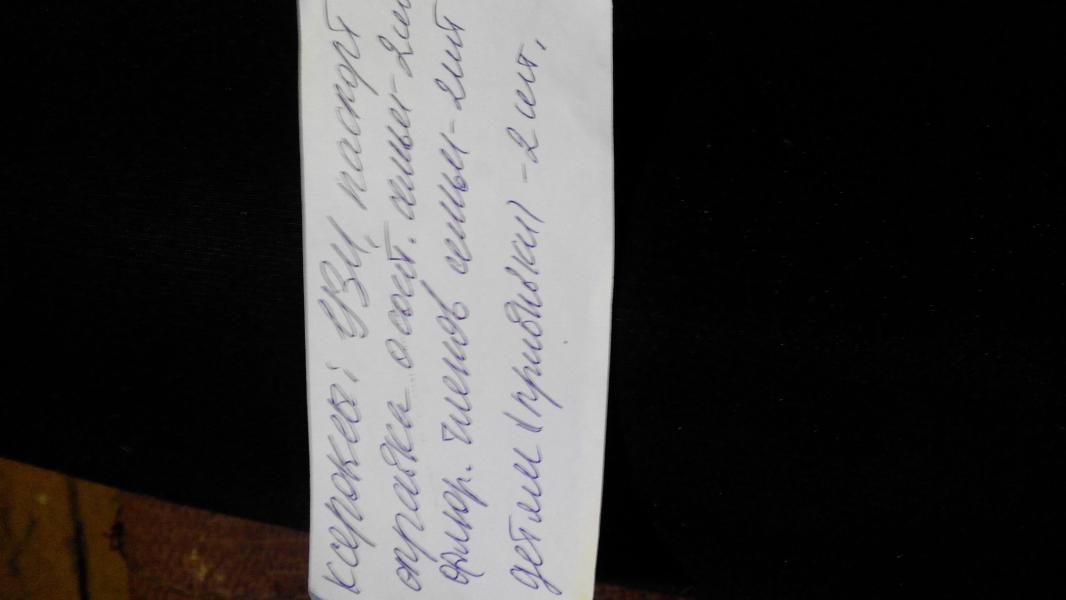 ксероксы: УЗИ, паспорт
справка о сост. семьи-2шт
Флюор. членов семьи-2шт
детям (прививки) -2шт.